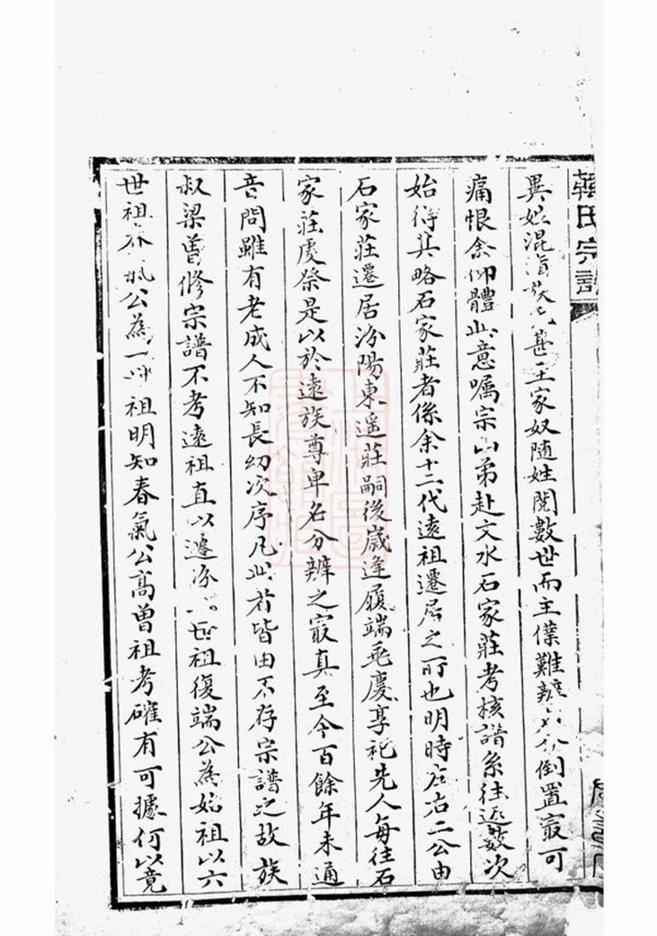 韓氏宗譜
異姓混淆族甚至家奴隨姓閱數世而主僕難辨倒置最可
痛恨余仰體此意囑宗山弟赴文水石家莊考核譜系往返數次
始得其略石家莊者係余十二代遠祖遷居之所也明時左右二公由
石家莊遷居汾陽東遥莊嗣後歲逢履端毛慶享祀先人每往石
家莊虔祭是以於遠族尊卑名分辨之最真至今百餘年未通
音問雖有老成人不知長幼次序凡此者皆由不存宗譜之故族
叔梁曾修宗譜不考遠祖直以遷汾世祖復端公為始祖以六
世祖公為一祖明知春氣公高曾祖考確有可據何以竟